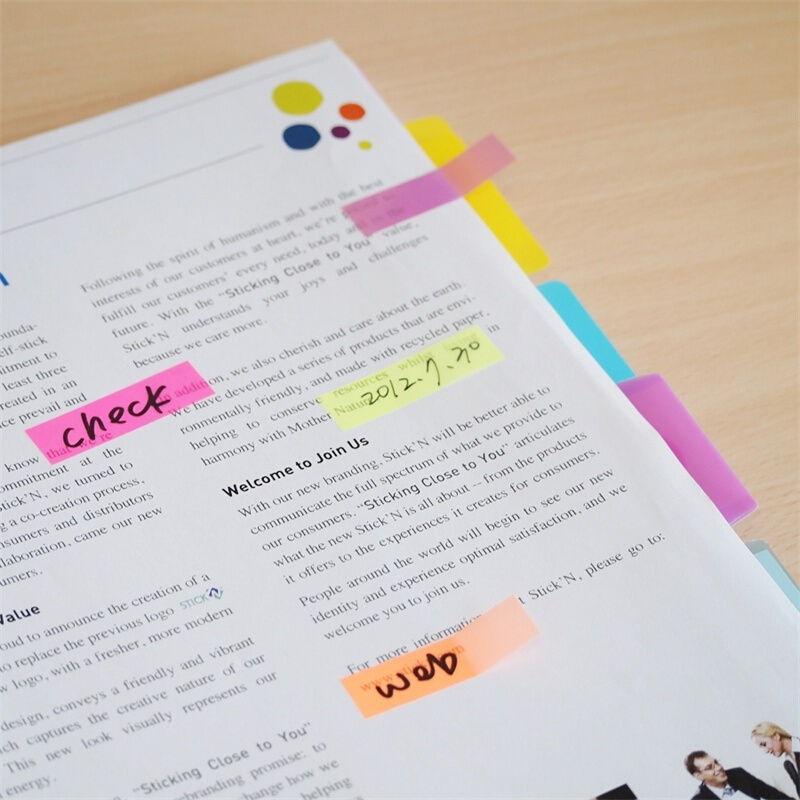 ounda-
elf-stick
mitment to
least three
reated in an
ce prevail and
know that we're
ommitment at the
tick'N, we turned to
g a co-creation process,
nsumers and distributors
llaboration, came our new
umers.
Value
oud to announce the creation of a
to replace the previous logo STICK'N
w logo, with a fresher, more modern
design, conveys a friendly and vibrant
ich captures the creative nature of our
This new look visually represents our
energy.
"Sticking Close to You"
ebranding promise: to
hange how we
helping
check
Following the spirit of humanism and with the best
interests of our customers at heart, we're
fulfill our customers' every need, today and in the
future. With the "Sticking Close to You" value,
Stick'N understands your joys and challenges
because we care more.
In addition, we also cherish and care about the earth.
We have developed a series of products that are envi-
ronmentally friendly, and made with recycled paper,
helping to conserve resources whilst in
harmony with Mother Nature.
2012.7.30
Welcome to Join Us
With our new branding, Stick'N will be better able to
communicate the full spectrum of what we provide to
our consumers. "Sticking Close to You" articulates
what the new Stick'N is all about – from the products
it offers to the experiences it creates for consumers.
People around the world will begin to see our new
identity and experience optimal satisfaction, and we
welcome you to join us.
For more information Stick'N, please go to:
web